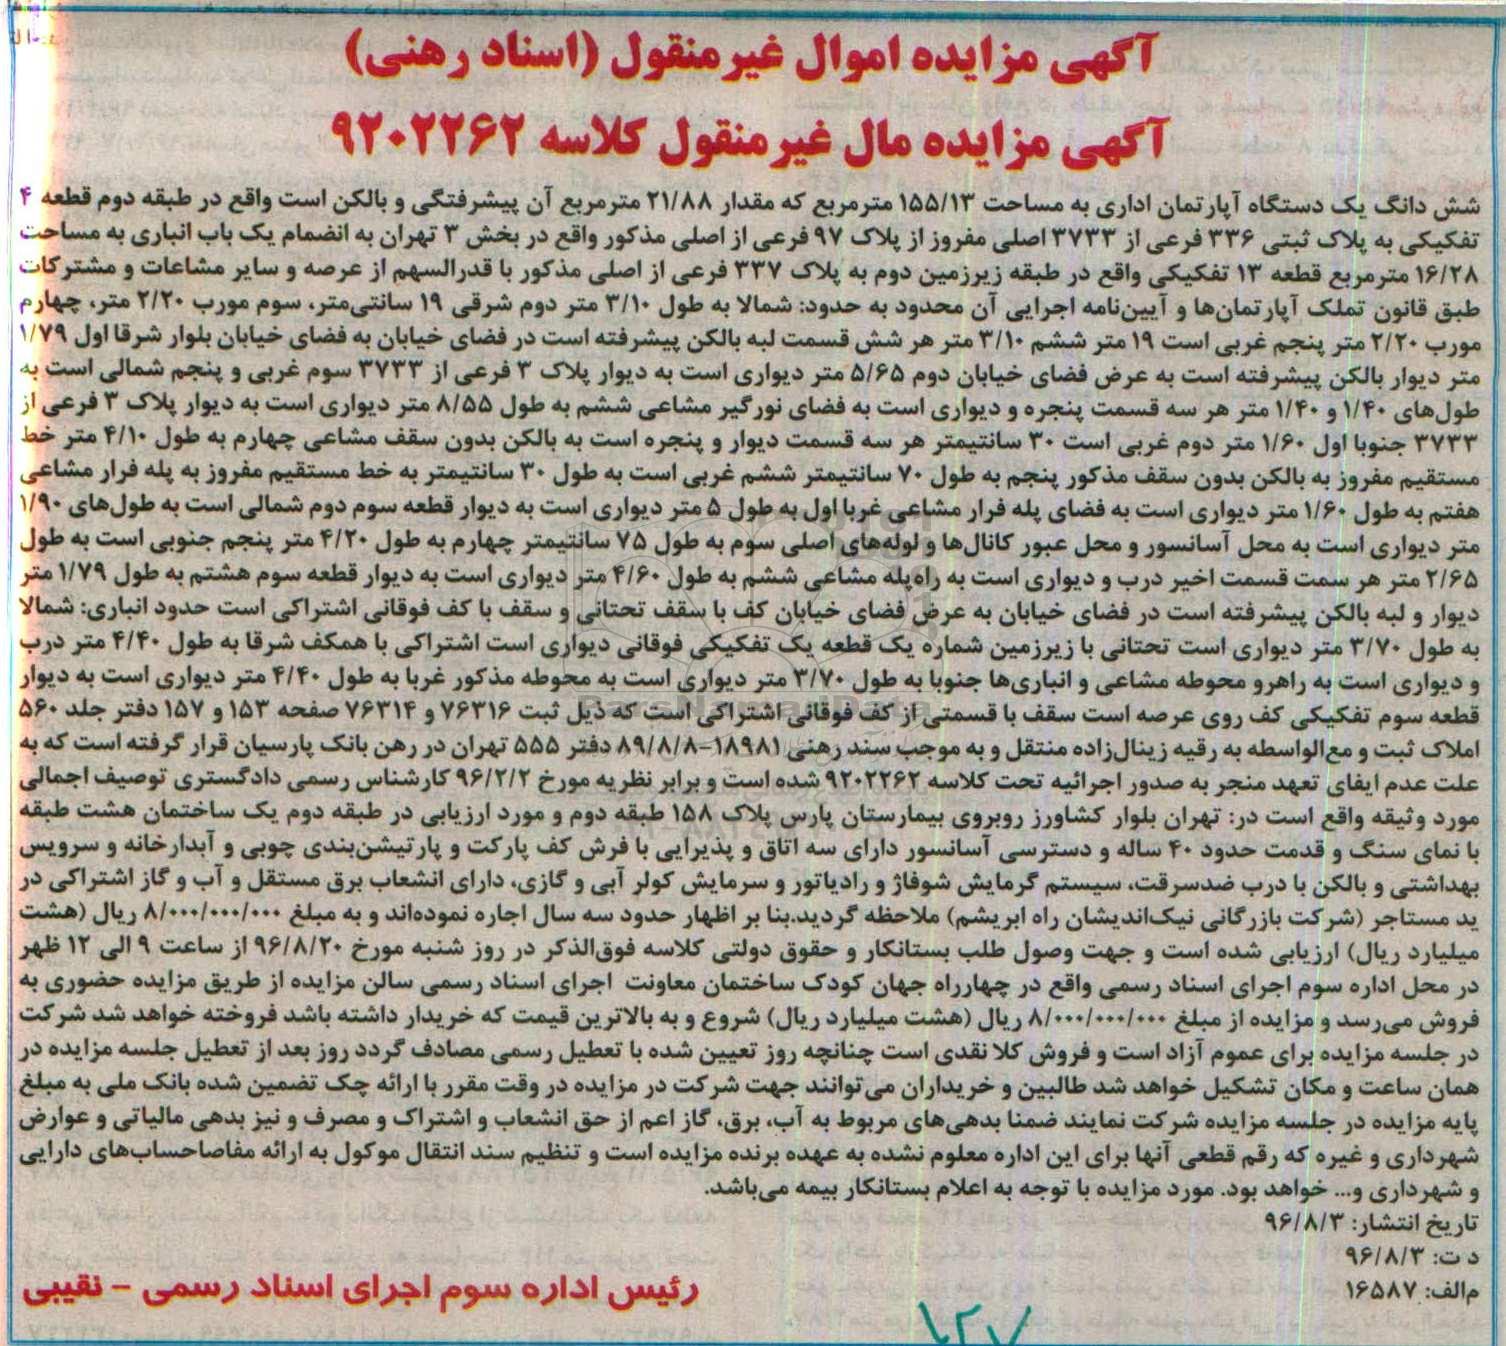 آگهی مزایده اموال غیرمنقول (اسناد رهنی)
آگهی مزایده مال غیرمنقول کلاسه ۹۲۰۲۲۶۲
شش دانگ یک دستگاه آپارتمان اداری به مساحت ۱۵۵/۱۳ مترمربع که مقدار ۲۱/۸۸ مترمربع آن پیشرفتگی و بالکن است واقع در طبقه دوم قطعه ۴
تفکیکی به پلاک ثبتی ۳۳۶ فرعی از ۳۷۳۳ اصلی مفروز از پلاک ۹۷ فرعی از اصلی مذکور واقع در بخش ۳ تهران به انضمام یک باب انباری به مساحت
۱۶/۲۸ مترمربع قطعه ۱۳ تفکیکی واقع در طبقه زیرزمین دوم به پلاک ۳۳۷ فرعی از اصلی مذکور با قدرالسهم از عرصه و سایر مشاعات و مشترکات
طبق قانون تملک آپارتمان‌ها و آیین‌نامه اجرایی آن محدود به حدود: شمالا به طول ۳/۱۰ متر دوم شرقی ۱۹ سانتی‌متر، سوم مورب ۲/۲۰ متر، چهارم
مورب ۲/۲۰ متر پنجم غربی است ۱۹ متر ششم ۳/۱۰ متر هر شش قسمت لبه بالکن پیشرفته است در فضای خیابان به فضای خیابان بلوار شرقا اول ۱/۷۹
متر دیوار بالکن پیشرفته است به عرض فضای خیابان دوم ۵/۶۵ متر دیواری است به دیوار پلاک ۳ فرعی از ۳۷۳۳ سوم غربی و پنجم شمالی است به
طول‌های ۱/۴۰ و ۱/۴۰ متر هر سه قسمت پنجره و دیواری است به فضای نورگیر مشاعی ششم به طول ۸/۵۵ متر دیواری است به دیوار پلاک ۳ فرعی از
۳۷۳۳ جنوبا اول ۱/۶۰ متر دوم غربی است ۳۰ سانتیمتر هر سه قسمت دیوار و پنجره است به بالکن بدون سقف مشاعی چهارم به طول ۴/۱۰ متر خط
مستقیم مفروز به بالکن بدون سقف مذکور پنجم به طول ۷۰ سانتیمتر ششم غربی است به طول ۳۰ سانتیمتر به خط مستقیم مفروز به پله فرار مشاعی
هفتم به طول ۱/۶۰ متر دیواری است به فضای پله فرار مشاعی غربا اول به طول ۵ متر دیواری است به دیوار قطعه سوم دوم شمالی است به طول‌های ۱/۹۰
متر دیواری است به محل آسانسور و محل عبور کانال‌ها و لوله‌های اصلی سوم به طول ۷۵ سانتیمتر چهارم به طول ۴/۲۰ متر پنجم جنوبی است به طول
۲/۶۵ متر هر سمت قسمت اخیر درب و دیواری است به راه‌پله مشاعی ششم به طول ۴/۶۰ متر دیواری است به دیوار قطعه سوم هشتم به طول ۱/۷۹ متر
دیوار و لبه بالکن پیشرفته است در فضای خیابان به عرض فضای خیابان کف با سقف تحتانی و سقف با کف فوقانی اشتراکی است حدود انباری: شمالا
به طول ۳/۷۰ متر دیواری است تحتانی با زیرزمین شماره یک قطعه یک تفکیکی فوقانی دیواری است اشتراکی با همکف شرقا به طول ۴/۴۰ متر درب
و دیواری است به راهرو محوطه مشاعی و انباری‌ها جنوبا به طول ۳/۷۰ متر دیواری است به محوطه مذکور غربا به طول ۴/۴۰ متر دیواری است به دیوار
قطعه سوم تفکیکی کف روی عرصه است سقف با قسمتی از کف فوقانی اشتراکی است که ذیل ثبت ۷۶۳۱۶ و ۷۶۳۱۴ صفحه ۱۵۳ و ۱۵۷ دفتر جلد ۵۶۰
املاک ثبت و مع‌الواسطه به رقیه زینال‌زاده منتقل و به موجب سند رهنی ۱۸۹۸۱-۸۹/۸/۸ دفتر ۵۵۵ تهران در رهن بانک پارسیان قرار گرفته است که به
علت عدم ایفای تعهد منجر به صدور اجرائیه تحت کلاسه ۹۲۰۲۲۶۲ شده است و برابر نظریه مورخ ۹۶/۲/۲ کارشناس رسمی دادگستری توصیف اجمالی
مورد وثیقه واقع است در: تهران بلوار کشاورز روبروی بیمارستان پارس پلاک ۱۵۸ طبقه دوم و مورد ارزیابی در طبقه دوم یک ساختمان هشت طبقه
با نمای سنگ و قدمت حدود ۴۰ ساله و دسترسی آسانسور دارای سه اتاق و پذیرایی با فرش کف پارکت و پارتیشن‌بندی چوبی و آبدارخانه و سرویس
بهداشتی و بالکن با درب ضدسرقت، سیستم گرمایش شوفاژ و رادیاتور و سرمایش کولر آبی و گازی، دارای انشعاب برق مستقل و آب و گاز اشتراکی در
ید مستاجر (شرکت بازرگانی نیک‌اندیشان راه ابریشم) ملاحظه گردید.بنا بر اظهار حدود سه سال اجاره نموده‌اند و به مبلغ ۸/۰۰۰/۰۰۰/۰۰۰ ریال (هشت
میلیارد ریال) ارزیابی شده است و جهت وصول طلب بستانکار و حقوق دولتی کلاسه فوق‌الذکر در روز شنبه مورخ ۹۶/۸/۲۰ از ساعت ۹ الی ۱۲ ظهر
در محل اداره سوم اجرای اسناد رسمی واقع در چهارراه جهان کودک ساختمان معاونت اجرای اسناد رسمی سالن مزایده از طریق مزایده حضوری به
فروش می‌رسد و مزایده از مبلغ ۸/۰۰۰/۰۰۰/۰۰۰ ریال (هشت میلیارد ریال) شروع و به بالاترین قیمت که خریدار داشته باشد فروخته خواهد شد شرکت
در جلسه مزایده برای عموم آزاد است و فروش کلا نقدی است چنانچه روز تعیین شده با تعطیل رسمی مصادف گردد روز بعد از تعطیل جلسه مزایده در
همان ساعت و مکان تشکیل خواهد شد طالبین و خریداران می‌توانند جهت شرکت در مزایده در وقت مقرر با ارائه چک تضمین شده بانک ملی به مبلغ
پایه مزایده در جلسه مزایده شرکت نمایند ضمنا بدهی‌های مربوط به آب، برق، گاز اعم از حق انشعاب و اشتراک و مصرف و نیز بدهی مالیاتی و عوارض
شهرداری و غیره که رقم قطعی آنها برای این اداره معلوم نشده به عهده برنده مزایده است و تنظیم سند انتقال موکول به ارائه مفاصاحساب‌های دارایی
و شهرداری و... خواهد بود. مورد مزایده با توجه به اعلام بستانکار بیمه می‌باشد.
تاریخ انتشار: ۹۶/۸/۳
د ت: ۹۶/۸/۳
م‌الف: ۱۶۵۸۷
رئیس اداره سوم اجرای اسناد رسمی - نقیبی